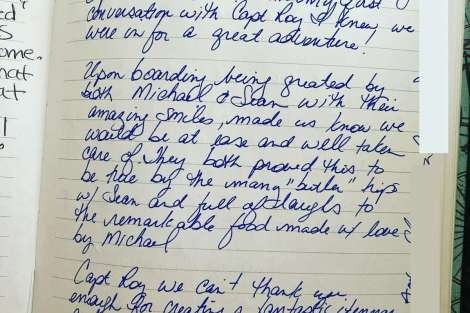 conversation with Capt Roy I knew we
were in for a great adventure.
Upon boarding being greated by
both Michael & Sean with their
amazing smiles, made us know we
would be at ease and well taken
care of. They both proved this to
be true by the many "butler" tips
w/ Sean and full of laughs to
the remarkable food made w/ love
by Michael
Capt Roy we can't thank you
enough for creating a fantastic
ome.
hat
at